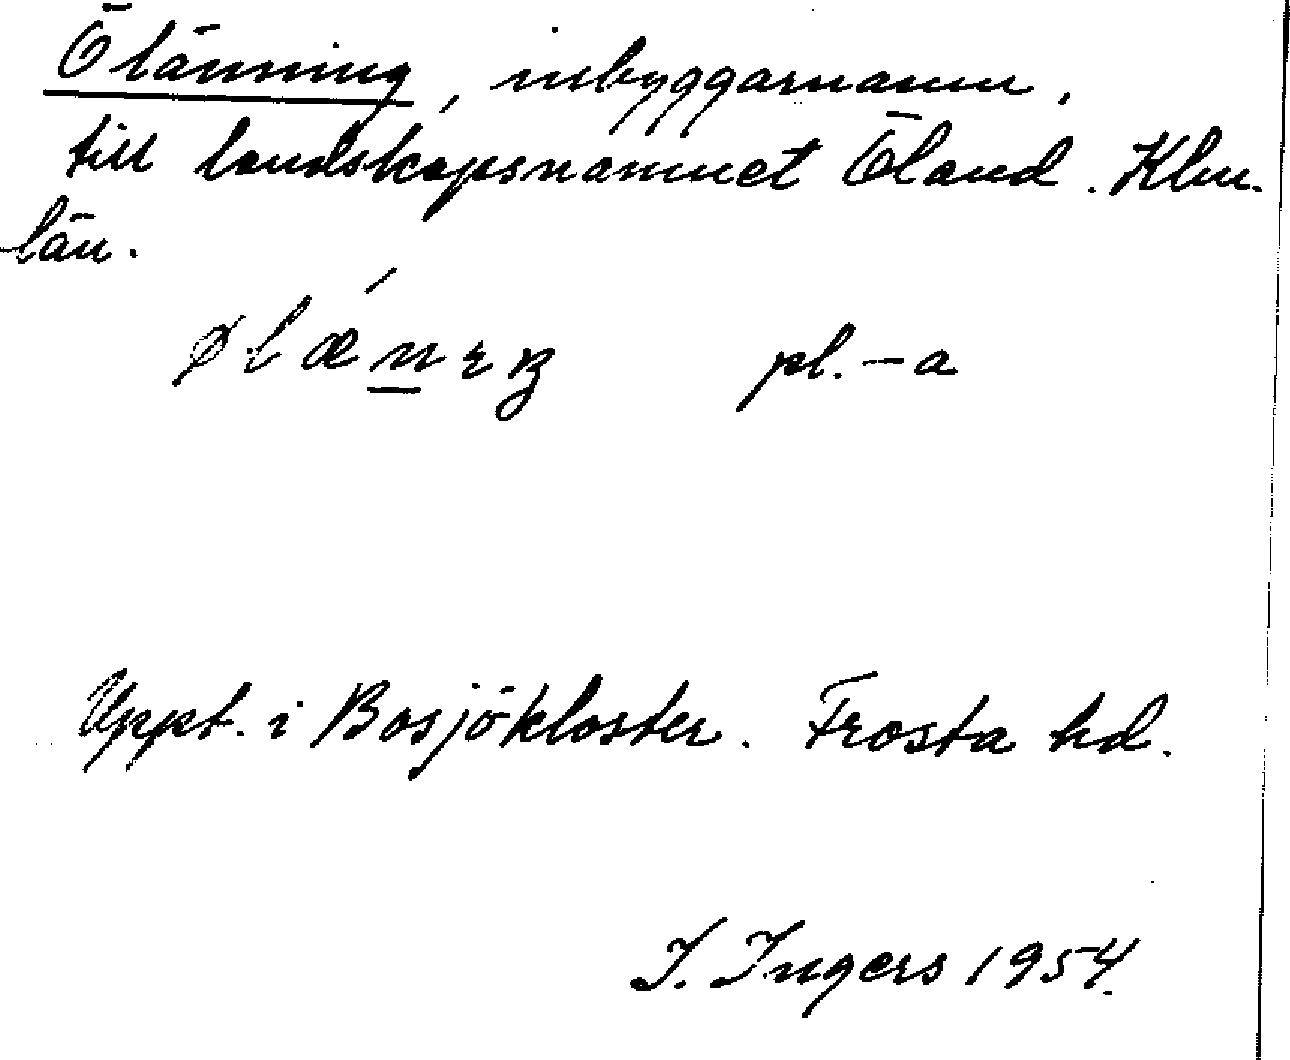 Ölänning, inbyggarnamn,
till landskapsnamnet Öland. Klm.
län.
pl. – a
Uppt. i Bosjökloster. Frosta hd.
I. Ingers 1954.